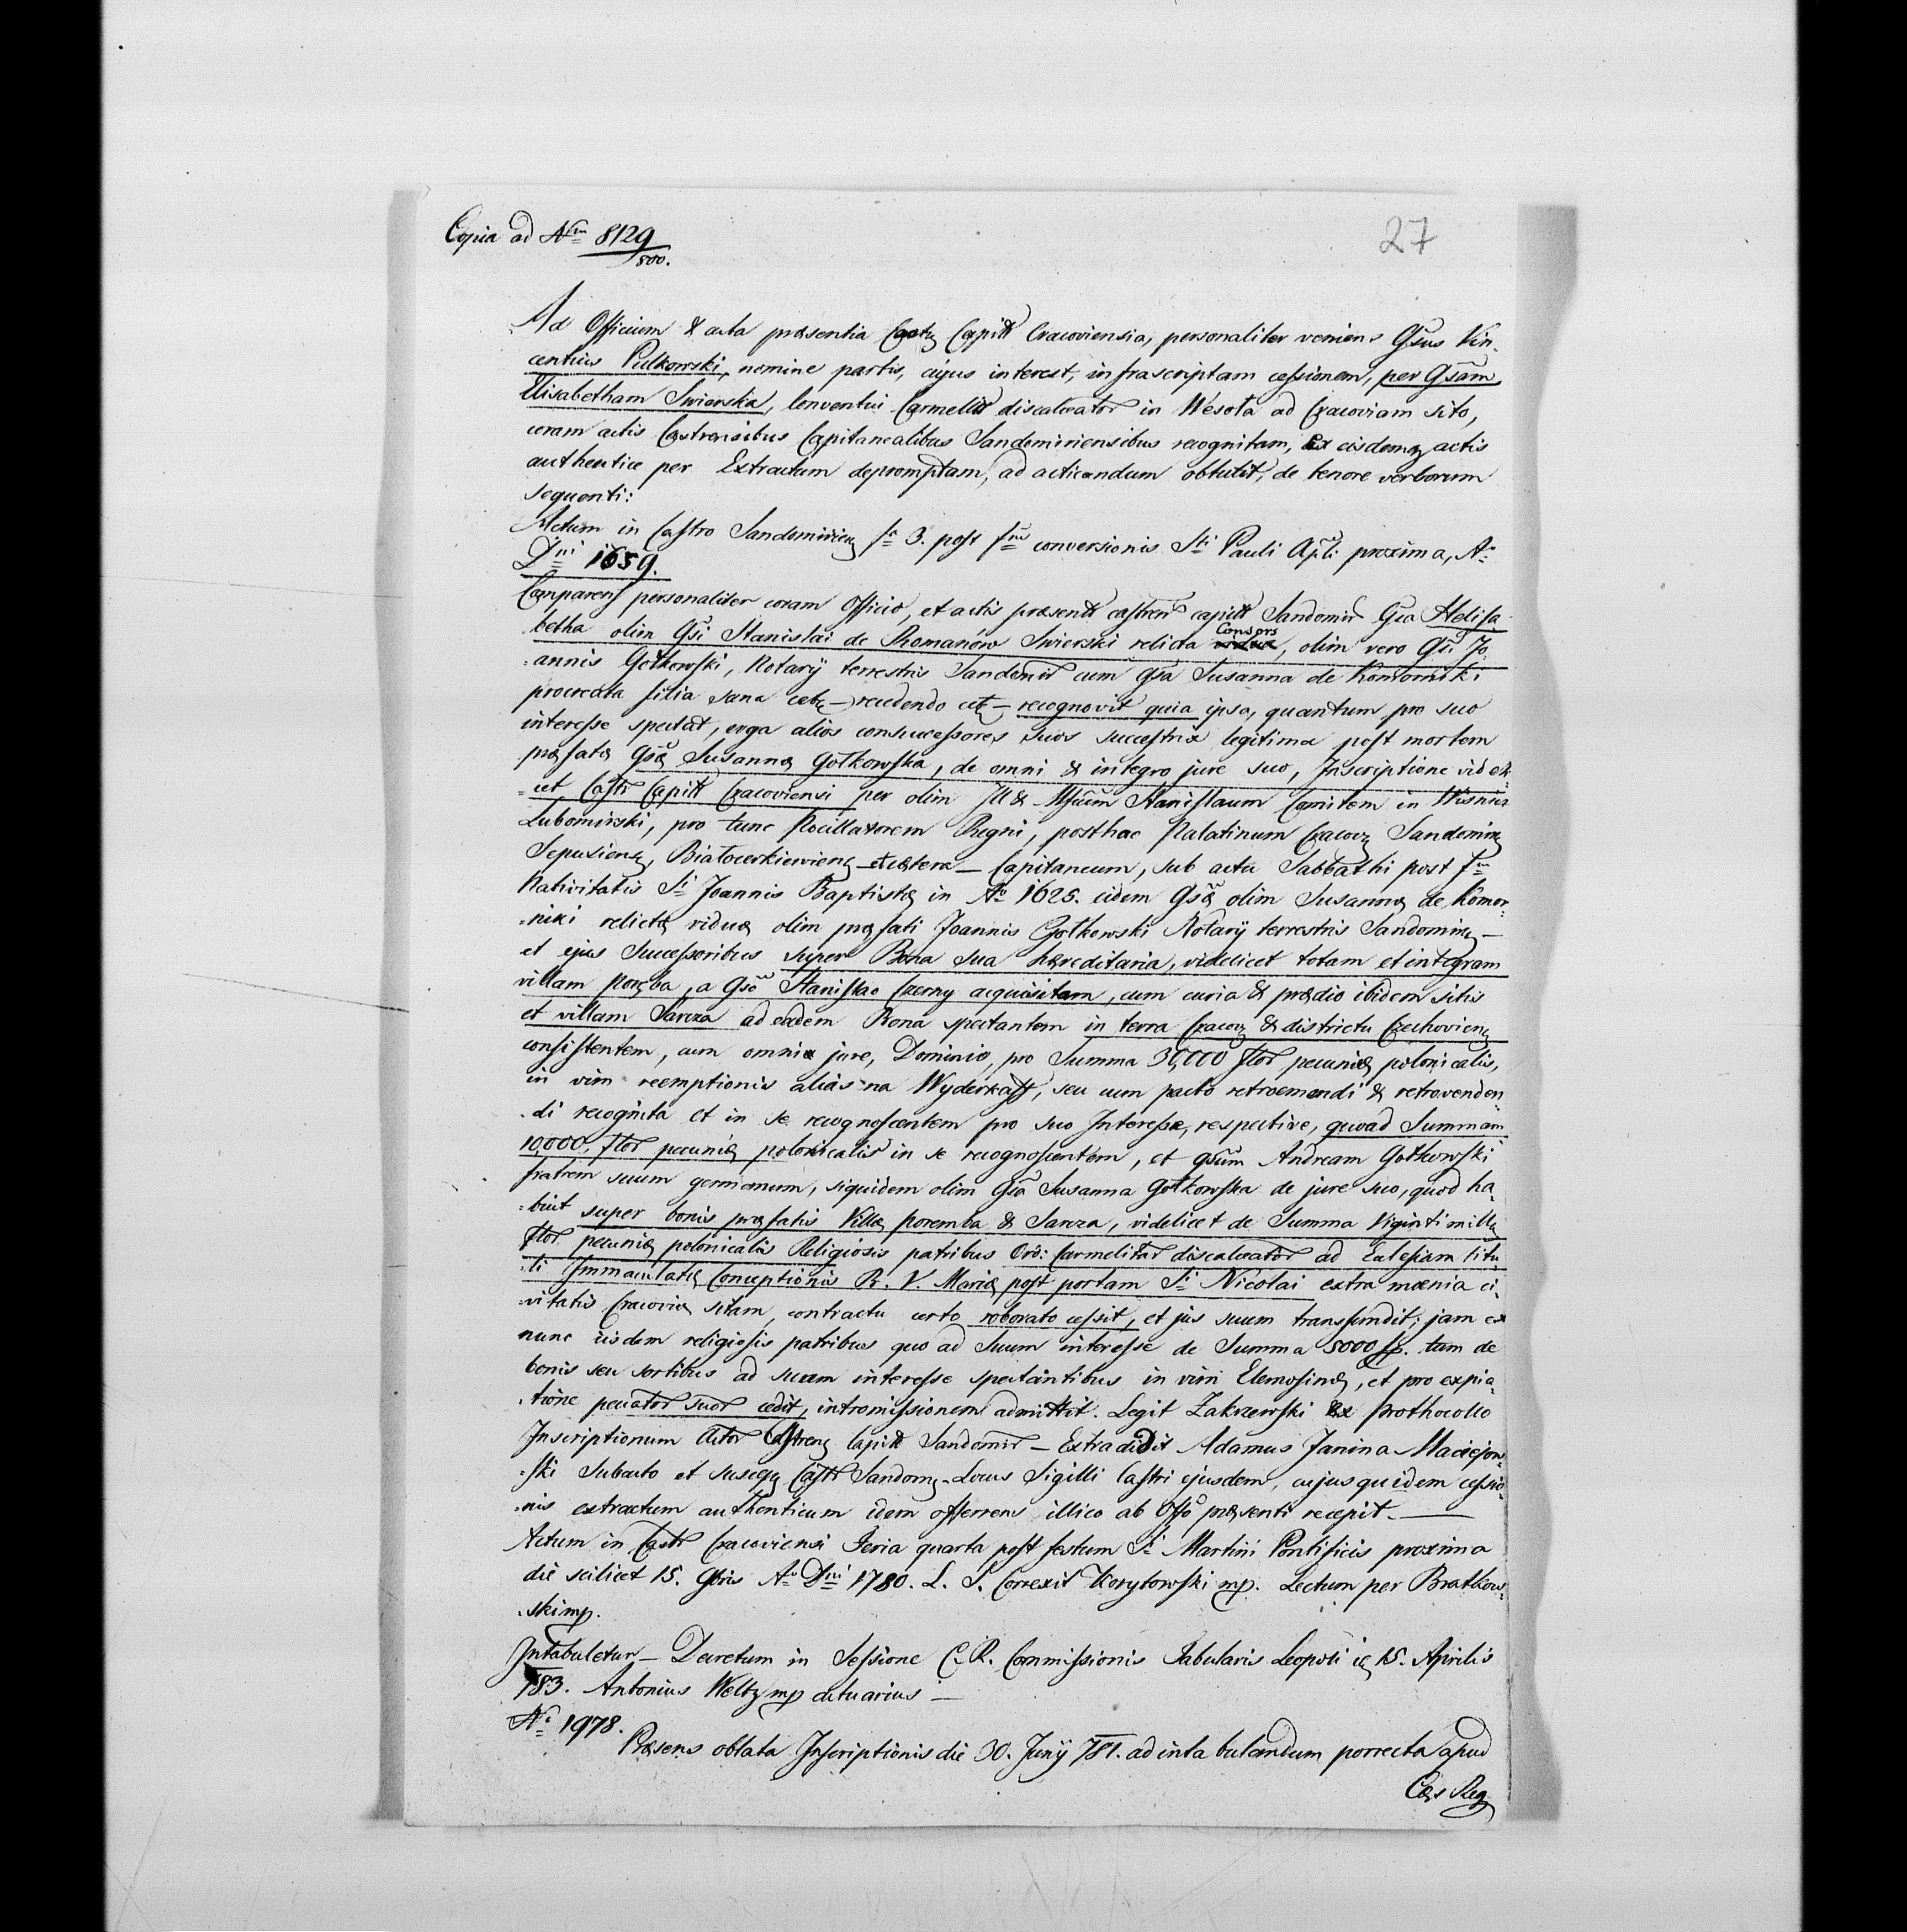 Copia ad Nrm 8129
800.
27
Ad Officium & acta præsentia Castr Capitt Cracoviensia, personaliter veniens Gsus Vin-
centius Pulkowski, nomine partis, cujus interest, infrascriptam cessionem, per Gsam
Elisabetham Swierska, Conventui Carmelit discalceator in Wesoła ad Cracoviam sito,
coram actis Castrensibus Capitanealibus Sandomiriensibus recognitam, Ex eisdemq actis
authentice per Extractum depromptam, ad acticandum obtulit, de tenore verborum
sequenti:
Actum in Castro Sandomirien fa 3. post fum conversionis Sti Pauli Apli proxima, Ao
Dni 1659.
Comparens personaliter coram Officio, et actis præsentt castren capitt Sandomir Gsa Helisa-
betha olim Gsi Stanislai de Romanów Swierski relicta Consors, olim vero Gsi Jo-
-annis Gołkowski, Notarij terrestris Sandomir cum Gsa Susanna de Komorniki
procreata filia sana cet – recedendo cet – recognovit quia ipsa, quantum pro suo
interesse spectat, erga alios consuccessores suos succestrix legitima post mortem
præfatæ Gsæ Susannæ Gołkowska, de omni & integro jure suo, Inscriptione videli-
-cet Castr Capitt Cracoviensi per olim Ill & Mgficum Stanislaum Comitem in Wisnicz
Lubomirski, pro tunc Pocillatorem Regni, posthac Palatinum Cracov Sandomir
Sepusiens, Białocerkiewiens etcætera – Capitaneum, sub actu Sabbathi post fum
Nativitatis Sti Joannis Baptistæ in Ao 1625. eidem Gsæ olim Susannæ de Komor-
-niki relictæ viduæ olim præfati Joannis Gołkowski Notarij terrestris Sandomir –
et ejus Successoribus super Bona sua hæreditaria, videlicet totam et integram
villam Poręba, a Gso Stanislao Czerny acquisitam, cum curia & prædio ibidem sitis
et villam Sarcza ad eadem Bona spectantem in terra Cracov & districtu Czchovien
consistentem, cum omni jure, Dominio, pro Summa 30,000 flor pecuniæ polonicalis,
in vim reemptionis alias na Wyderkaff, seu cum pacto retroemendi & retrovenden-
-di recognita et in se recognoscentem pro suo Interesse, respective, quoad Summam
10,000, flor pecuniæ polonicalis in se recognoscentem, et Gsum Andream Gołkowski
fratrem suum germanum, siquidem olim Gsa Susanna Gołkowska de jure suo, quod ha-
-buit super bonis præfatis Villæ Poremba & Sarcza, videlicet de Summa Viginti mille
flor pecuniæ polonicalis Religiosis patribus Ord: Carmelitar discalceator ad Eclesiam titu-
-li Immaculatæ Conceptionis B. V. Mariæ post portam Sti Nicolai extra mænia ci-
-vitatis Cracoviæ sitam, contractu certo roborato cessit, et jus suum transfundit; jam ex
nunc iisdem religiosis patribus quo ad suum interesse de Summa 5000 fp. tam de
bonis seu sortibus ad suam interesse spectantibus in vim Elemosinæ, et pro expia-
-tione peccator suor cedit, intromissionem admittit. Legit Zakrzewski Ex prothocollo
Inscriptionum Actor Castrens Capitt Sandomir – Extradidit Adamus Janina Maciejow-
-ski Subacto et suscep Castr Sandom – Locus Sigilli Castri ejusdem, cujus quidem cessio-
-nis extractum authenticum idem offerens illico ab Offo præsenti recepit. –
Actum in Castr Cracoviensi Feria quarta post festum Sti Martini Pontificis proxima
die scilicet 15. 9bris Ao Dni 1780. L. S. Correxit Korytowski mp. Lectum per Bratkow-
-ski mp.
Intabuletur – Decretum in Sessione C. R. Commissionis Tabularis Leopoli 15. Aprilis
783. Antonius Weltz mp actuarius –
Nr 1978.
Præsens oblata Inscriptionis die 30. Junij 781. ad intabulandum porrecta apud
Cæs Reg